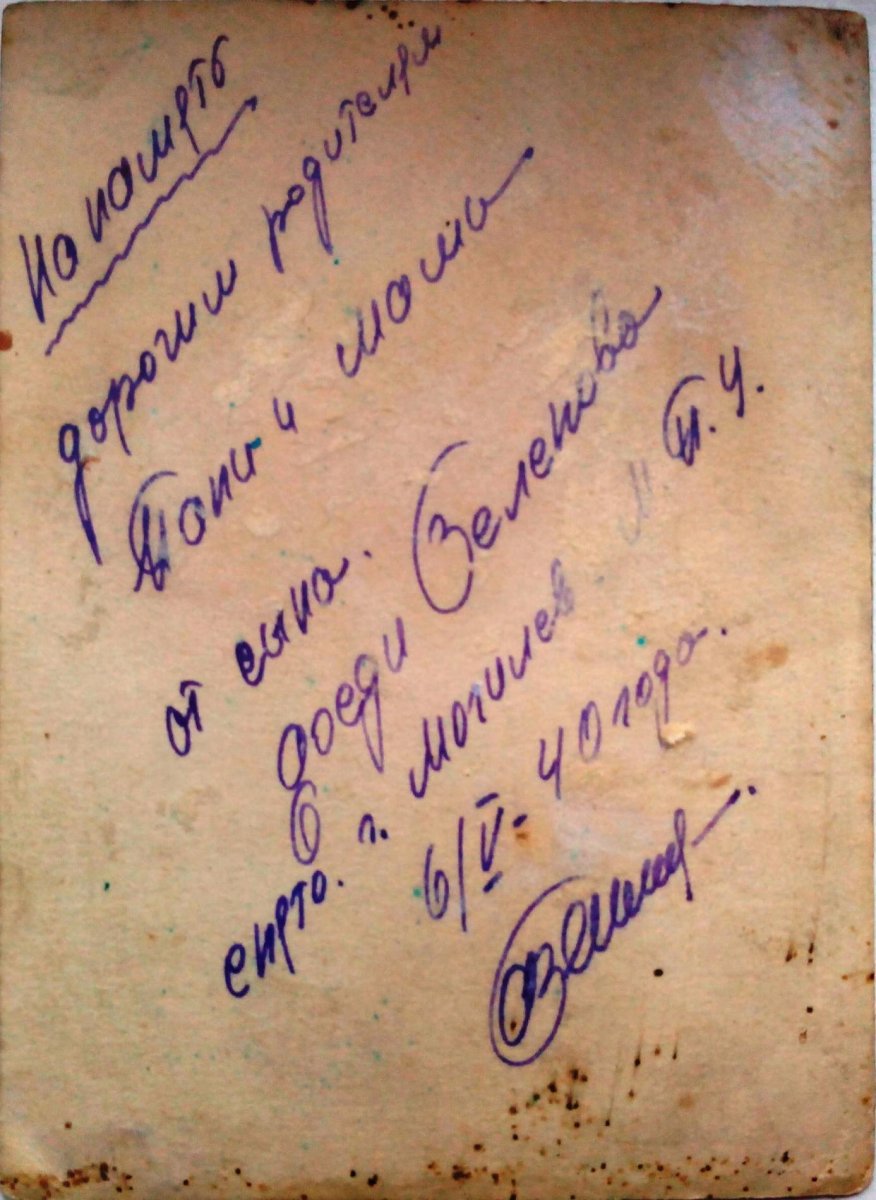 На память
дорогим родителям
Папи и мами
от сына.
Феди Зеленова
снято. г. Могилев М.П.У.
6/V-40 года.